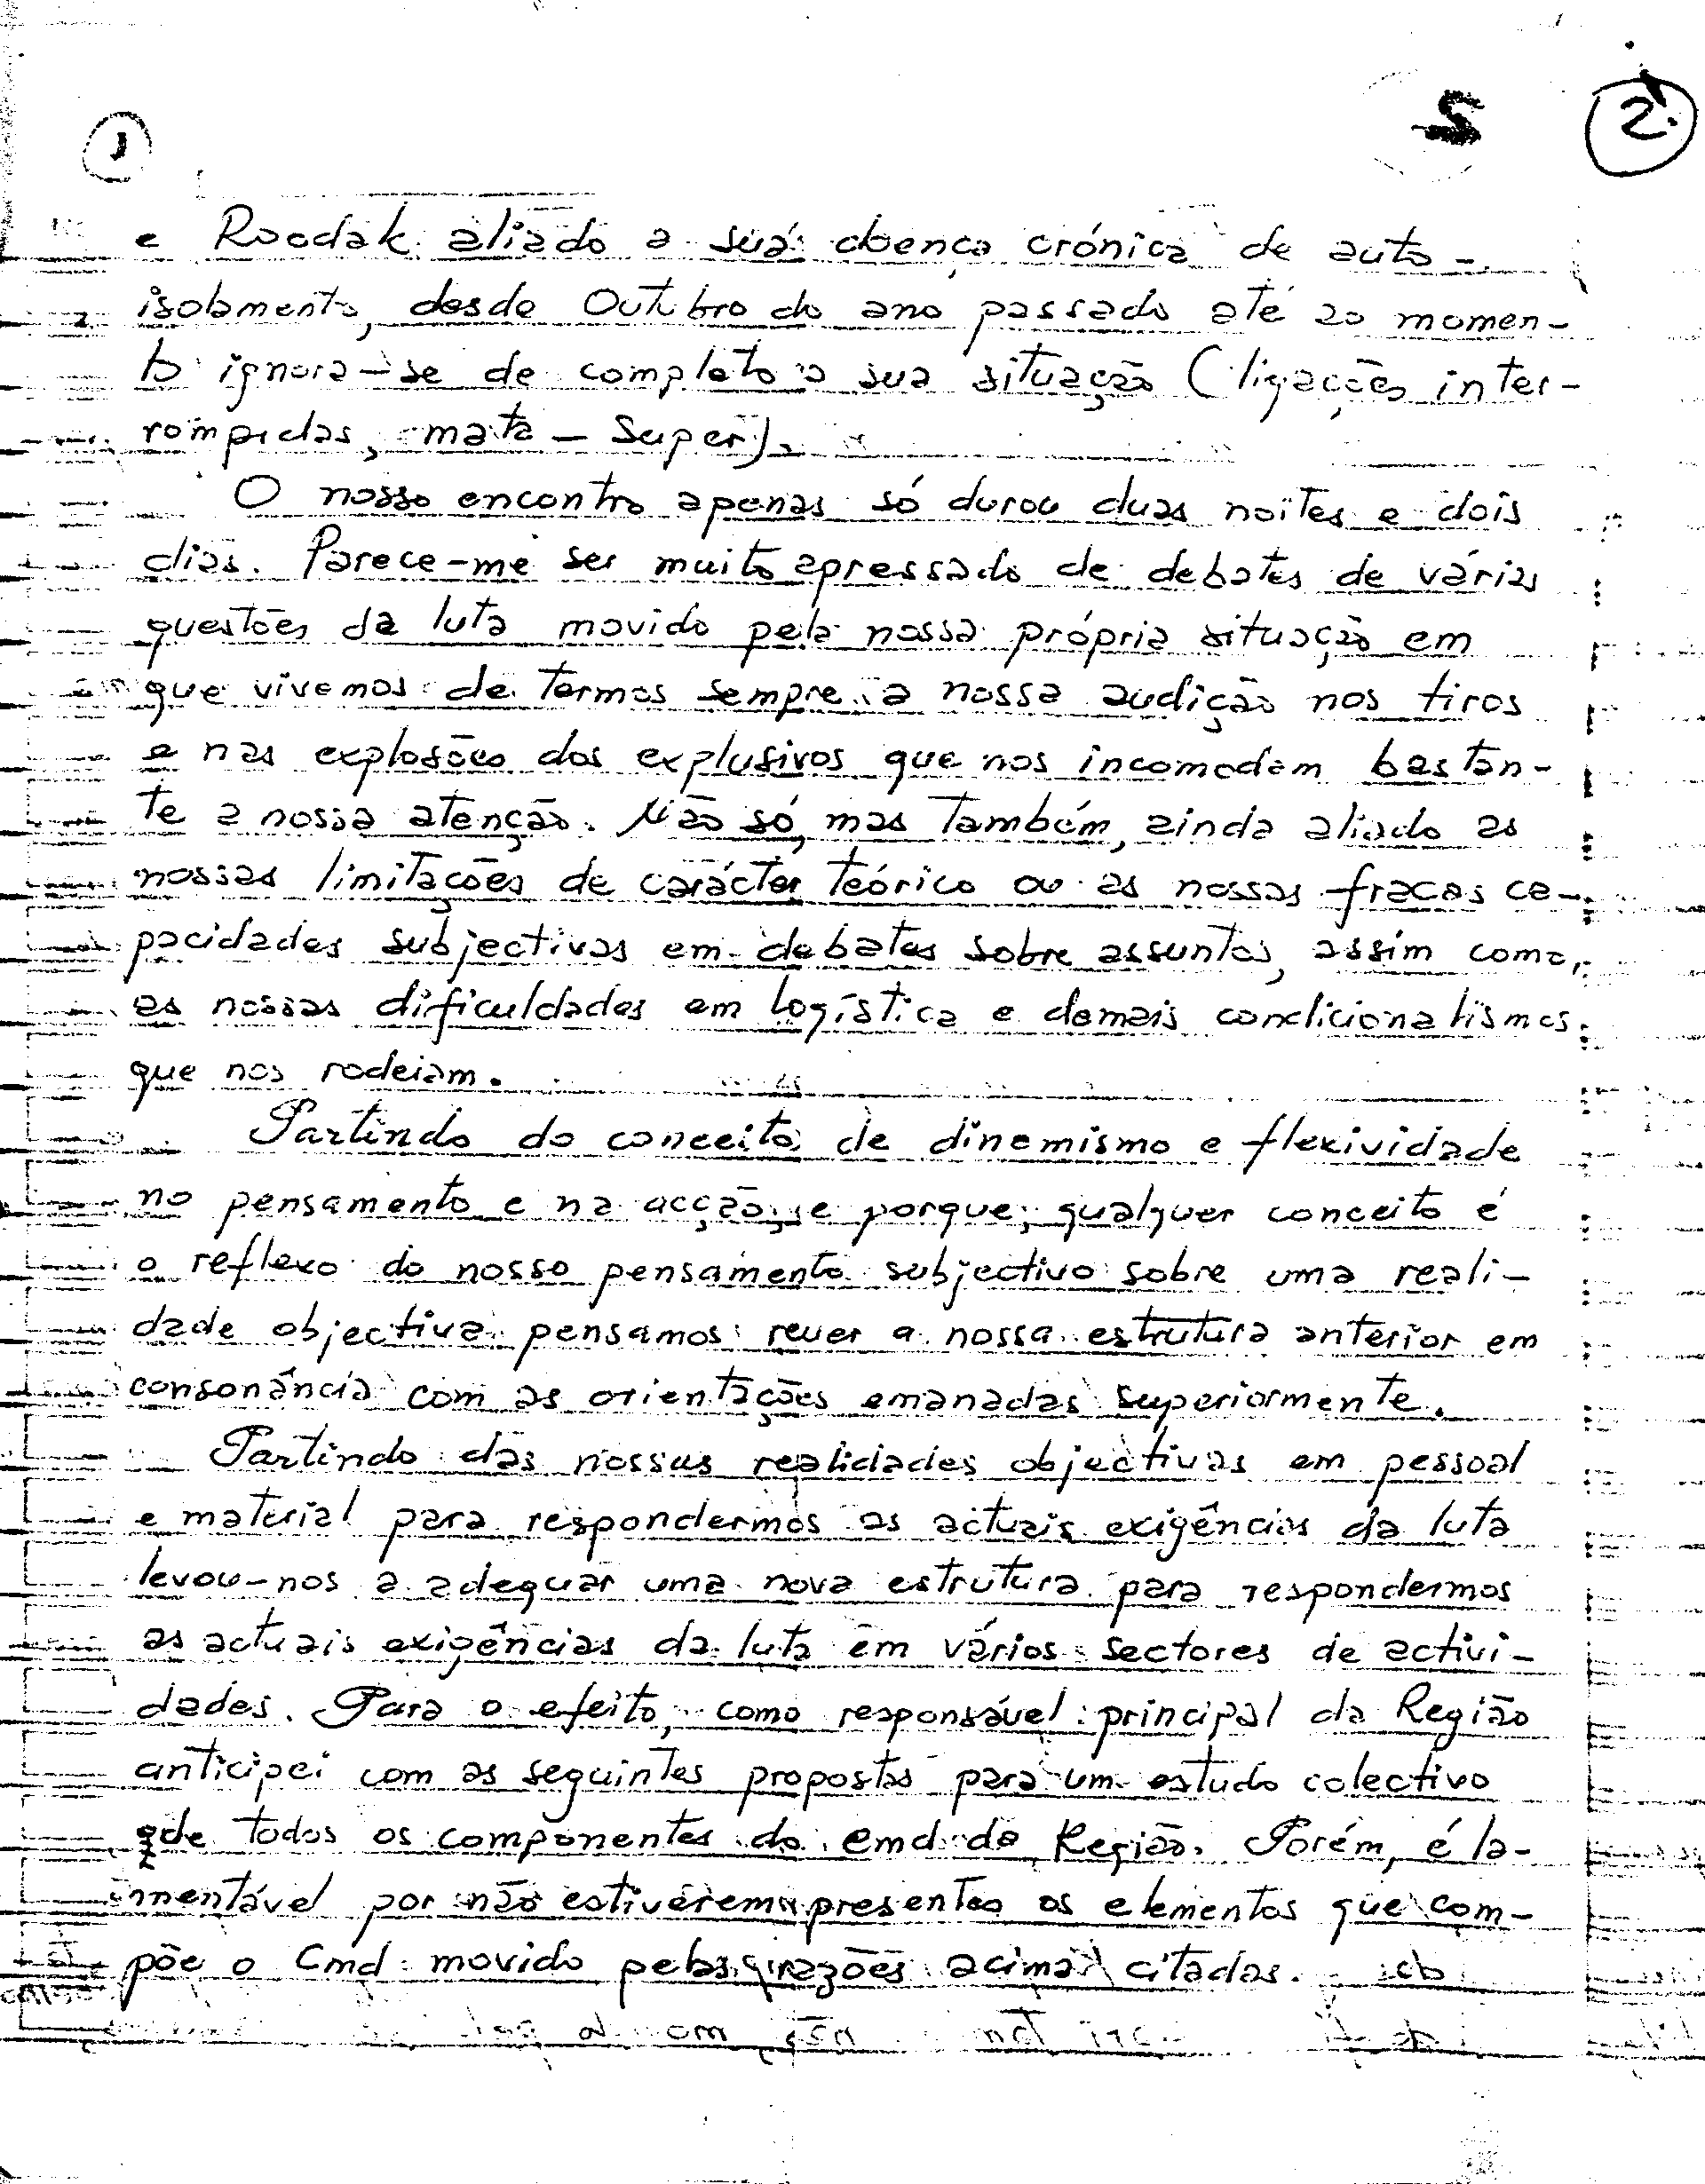 1 S 2
e Roodak aliado a sua doença crónica de auto-
isolamento, desde Outubro do ano passado até ao momen-
to ignora-se de completo a sua situação (ligações inter-
rompidas, mata - Super).
O nosso encontro apenas só durou duas noites e dois
dias. Parece-me ser muito apressado de debates de várias
questões da luta movido pela nossa própria situação em
que vivemos de termos sempre a nossa audição nos tiros
e nas explosões dos explusivos que nos incomodam bastan-
te a nossa atenção. Não só, mas também, ainda aliado as
nossas limitações de carácter teórico ou as nossas fracas ca-
pacidades subjectivas em debates sobre assuntos, assim como,
as nossas dificuldades em logística e demais condicionalismos
que nos rodeiam.
Partindo do conceito de dinamismo e flexividade
no pensamento e na acção, e porque, qualquer conceito é
o reflexo do nosso pensamento subjectivo sobre uma reali-
dade objectiva pensamos rever a nossa estrutura anterior em
consonância com as orientações emanadas superiormente.
Partindo das nossas realidades objectivas em pessoal
e material para respondermos as actuais exigências da luta
levou-nos a adequar uma nova estrutura para respondermos
as actuais exigências da luta em vários sectores de activi-
dades. Para o efeito, como responsável principal da Região
anticipei com as seguintes propostas para um estudo colectivo
de todos os componentes do Cmd da Região. Porém, é la-
mentável por não estiverem presentes os elementos que com-
põe o Cmd movido pelas razões acima citadas.